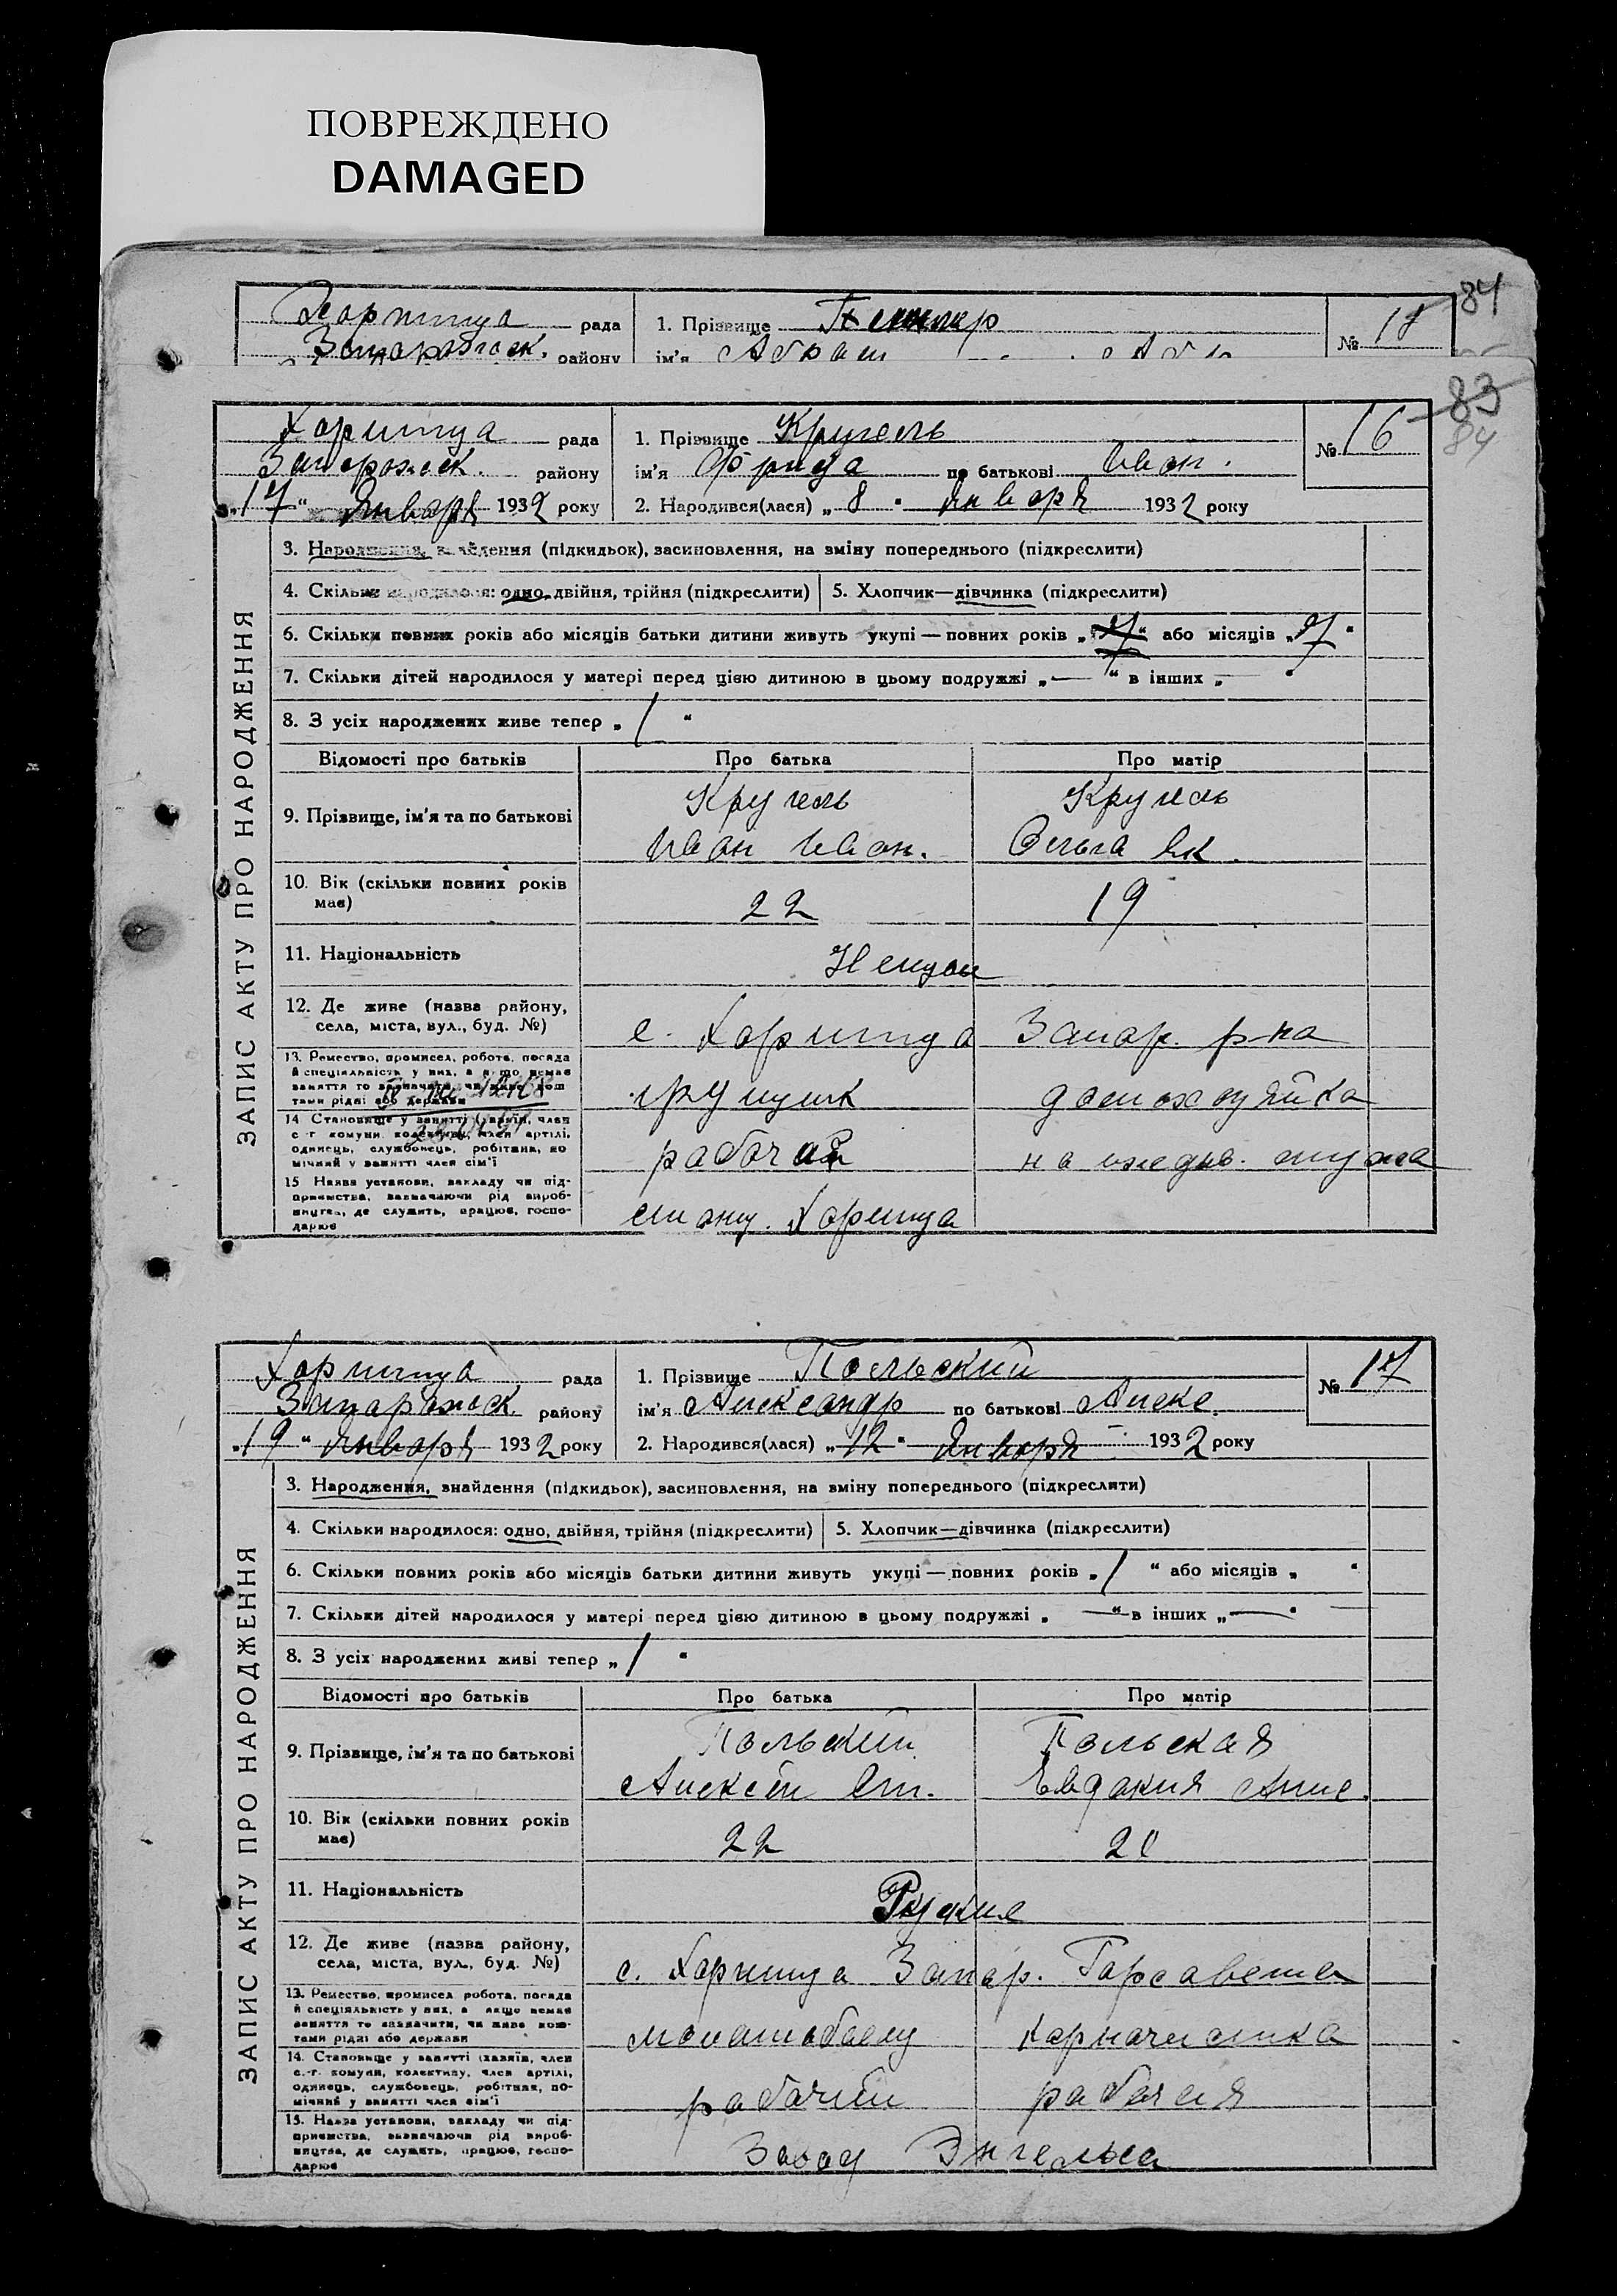 ПОВРЕЖДЕНО
DAMAGED
84
Хортица рада 1. Прізвище № 18
Запорожск. району ім'я Абрам
83
84
Хортица рада 1. Прізвище Кругель № 16
Запорожск. району ім'я Фрида по батькові Иван.
„17“ Января 1932 року 2. Народився(лася) „8“ Января 1932 року
ЗАПИС АКТУ ПРО НАРОДЖЕННЯ
3. Народження, знайдення (підкидьок), засиновлення, на зміну попереднього (підкреслити)
4. Скільки народилося: одно, двійня, трійня (підкреслити) 5. Хлопчик—дівчинка (підкреслити)
6. Скільки повних років або місяців батьки дитини живуть укупі — повних років „ “ або місяців „ “
7. Скільки дітей народилося у матері перед цією дитиною в цьому подружжі „—“ в інших „—“
8. З усіх народжених живе тепер „1“
Відомості про батьків Про батька Про матір
9. Прізвище, ім'я та по батькові Кругель Кругель
Иван Иван. Ольга
10. Вік (скільки повних років має) 22 19
11. Національність Немцы
12. Де живе (назва району, села, міста, вул., буд. №) с. Хортица Запор. р-на
13. Ремество, промисел, робота, посада й спеціяльність у них, а якщо немає заняття то зазначити, чи живе коштами рідні або держави грузчик домохозяйка
14 Становище у занятті (хазяїн, член с.-г. комуни, колективу, член артілі, одинець, службовець, робітник, помічний у занятті член сім'ї рабочий на иждив. мужа
15 Назва установи, закладу чи підприємства, зазначаючи рід виробництва, де служить, працює, господарює станц. Хортица
Хортица рада 1. Прізвище Польский № 17
Запорожск. району ім'я Александр по батькові Алекс.
„19“ Января 1932 року 2. Народився(лася) „12“ Января 1932 року
ЗАПИС АКТУ ПРО НАРОДЖЕННЯ
3. Народження, знайдення (підкидьок), засиновлення, на зміну попереднього (підкреслити)
4. Скільки народилося: одно, двійня, трійня (підкреслити) 5. Хлопчик—дівчинка (підкреслити)
6. Скільки повних років або місяців батьки дитини живуть укупі — повних років „1“ або місяців „ “
7. Скільки дітей народилося у матері перед цією дитиною в цьому подружжі „—“ в інших „—“
8. З усіх народжених живі тепер „1“
Відомості про батьків Про батька Про матір
9. Прізвище, ім'я та по батькові Польский Польская
Алексей Евдокия
10. Вік (скільки повних років має) 22 20
11. Національність Руские
12. Де живе (назва району, села, міста, вул., буд. №) с. Хортица Запор. Горсовета
13. Ремество, промисел робота, посада й спеціяльність у них, а якщо немає заняття то зазначити, чи живе коштами рідні або держави молотобоец
14. Становище у занятті (хазяїн, член с.-г. комуни, колективу, член артілі, одинець, службовець, робітник, помічний у занятті член сім'ї рабочий рабочая
15. Назва установи, закладу чи підприємства, зазначаючи рід виробництва, де служить, працює, господарює Завод Энгельса